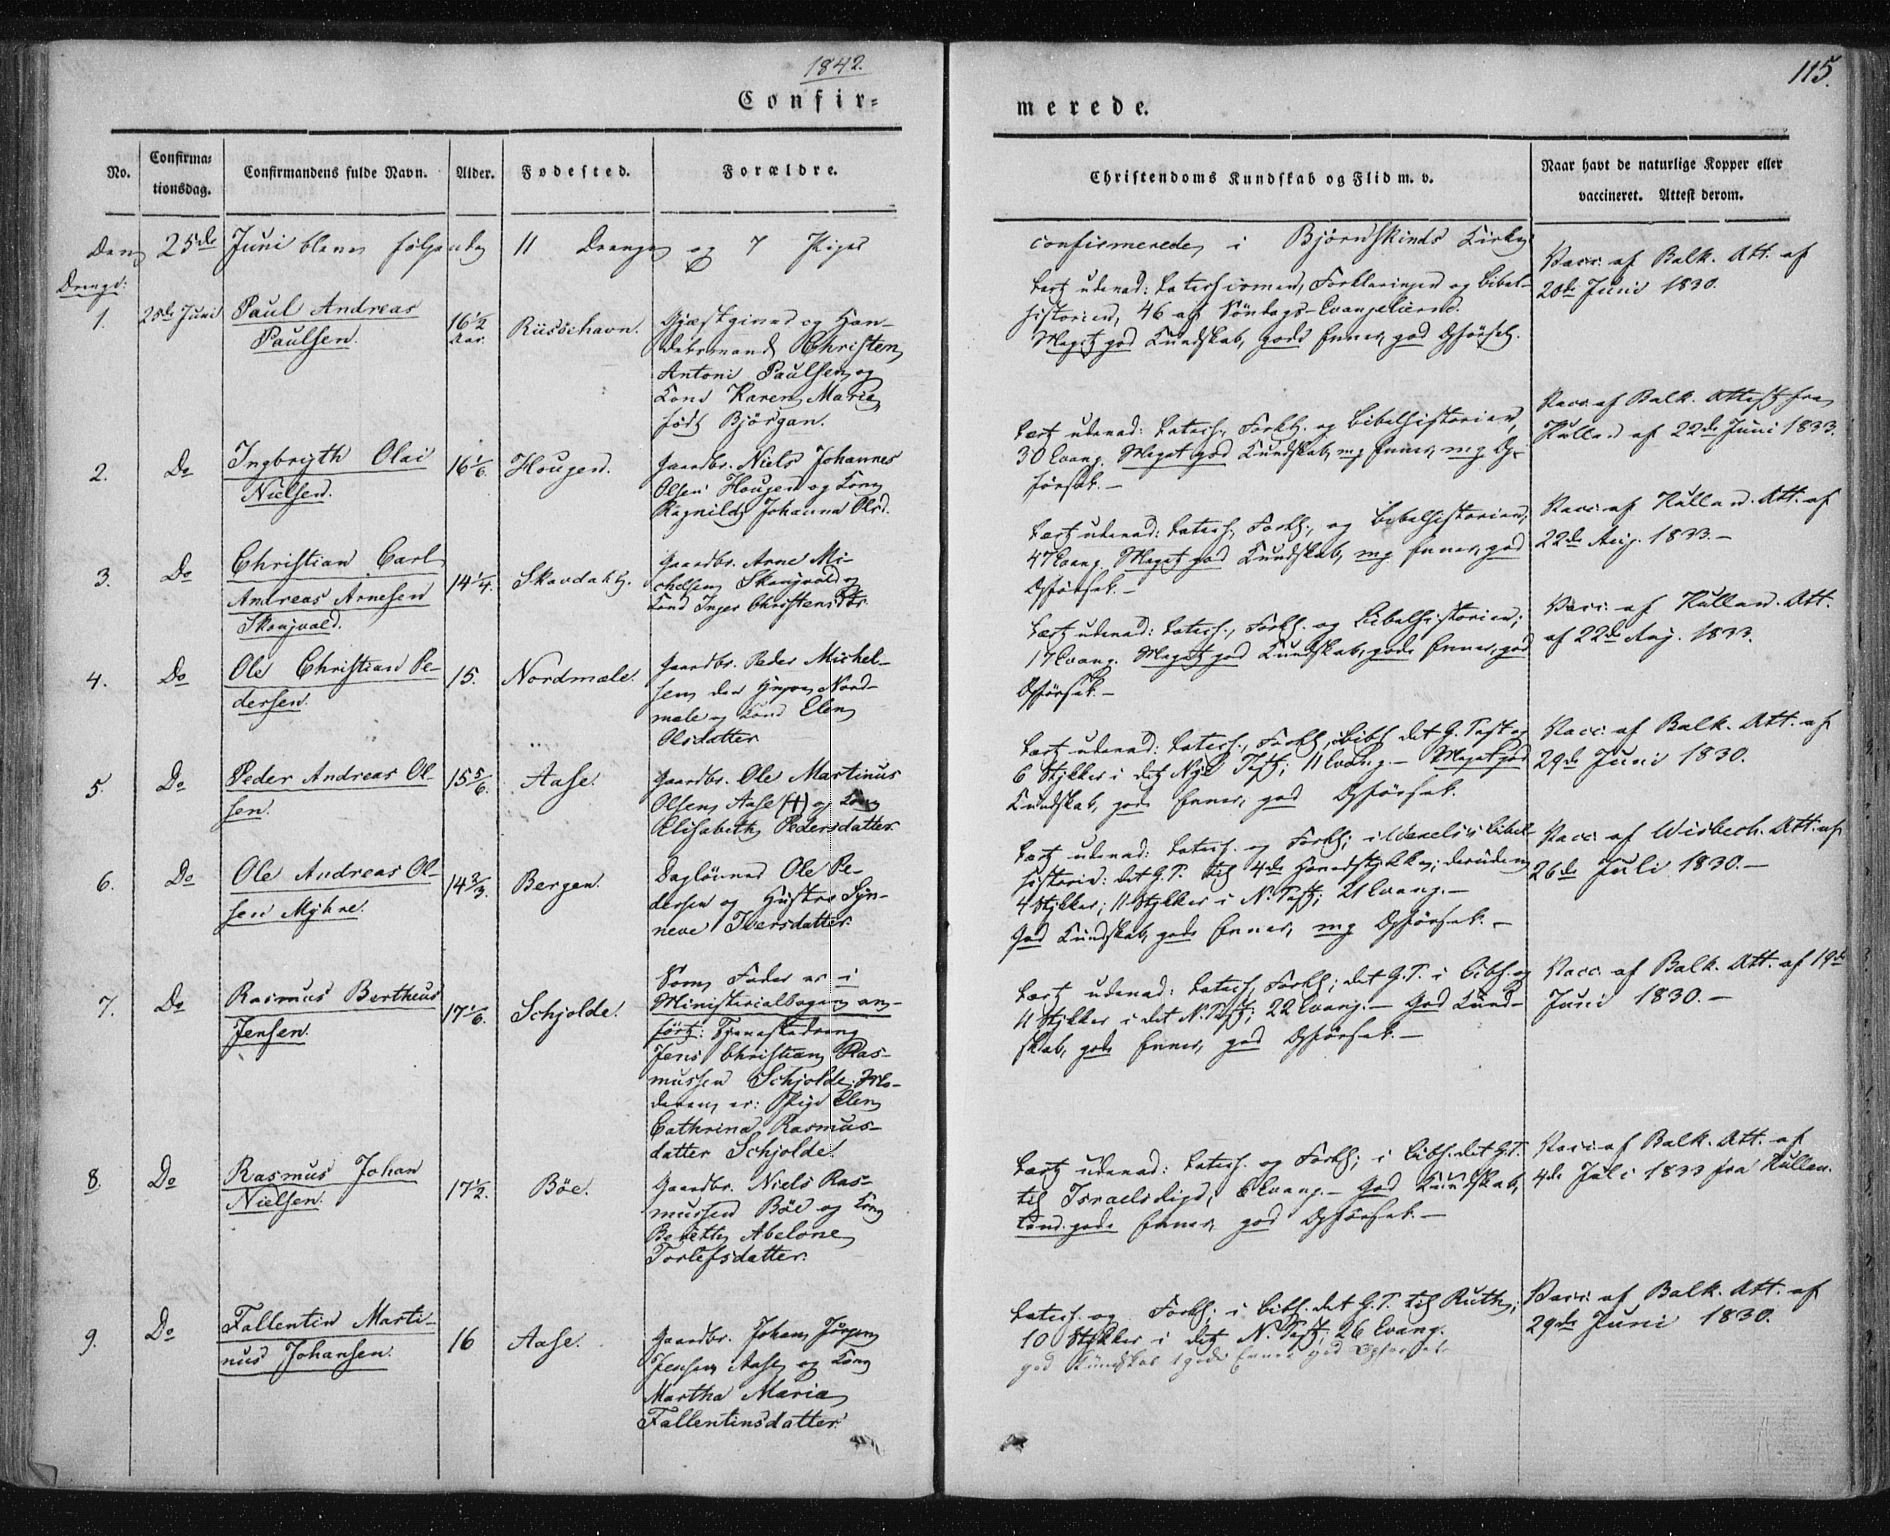 1842.
115.
Confir=
merede.
No.
Confirma=
tionsdag.
Confirmandens fulde Navn.
Alder.
Fødested.
Forældre.
Christendoms Kundskab og Flid m. v.
Naar havt de naturlige Kopper eller
vaccineret. Attest derom.
Den 25de Juni bleve følgende 11 Drenge og 7 Piger
confirmerede i Bjørnskinds Kirke
Drenge:
1.
25de Juni
Paul Andreas
Paulsen.
16 1/2
Aar.
Riisøehavn.
Gjæstgiver og Han-
delsmand Christen
Antoni Paulsen og
Kone Karen Maria
født Björgan.
Lært udenad: Catechismen, Forklaringen og Bibel-
historien, 46 af Söndags-Evangelierne.
Meget god Kundskab, gode Evner, god Opförsel.
Vacc. af Balk. Att. af
20de Juni 1830.
2.
Do
Ingbrigth Olai
Nielsen.
16 1/6.
Hougen.
Gaardbr. Niels Johannes
Olsen Hougen og Kone
Ragnild Johanna Olsd.
Lært udenad: Catech., Forkl. og Bibelhistorien,
30 Evang. Meget god Kundskab, mg Evner, mg Op-
försel. -
Vacc. af Balk. Attest fra
Kullan af 22de Juni 1833.
3.
Do
Christian Carl
Andreas Arnesen
Skougvold.
14 1/4.
Skavdahl.
Gaardbr. Arne Mi-
chelsen Skougvold og
Kone Inger Christensdtr.
Lært udenad: Catech., Forkl., og Bibelhistorien,
47 Evang. Meget god Kundskab, mg Evner, god
Opförsel. -
Vacc. af Kullan. Att. af
22de Aug. 1833. -
4.
Do
Ole Christian Pe-
dersen.
15.
Nordmæle.
Gaardbr. Peder Michel-
sen den Nord-
mæle og Kone Elen
Olsdatter
Lært udenad: Catech., Forkl. og Bibelhistorien;
17 Evang. Meget god Kundskab, gode Evner, god
Opförsel. -
Vacc. af Kullan. Att.
af 22de Aug. 1833.
5.
Do
Peder Andreas Ol-
sen.
15 5/6.
Aase.
Gaardbr. Ole Martinus
Olsen Aase (+) og Kone
Elisabeth Pedersdatter.
Lært udenad: Catech., Forkl., Bibh. det G. Test. og
6 Stykker i det Nye Test; 11 Evang. - Meget god
Kundskab, gode Evner, god Opförsel.
Vacc. af Balk. Att. af
29de Juni 1830.
6.
Do
Ole Andreas Ol-
sen Myhre.
14 2/3.
Bergen.
Daglönner Ole Pe-
dersen og Hustru Syn-
neve Iversdatter.
Lært udenad: Catech. og Forkl; i Wexels's Bibel-
historie: det G. T. til 4de Hovedstykke; desuden
4 Stykker; 11 Stykker i N. Test; 21 Evang. -
God Kundskab, gode Evner, mg Opförsel. -
Vacc. af Wisbech. Att. af
26de Juli 1830. -
7.
Do
Rasmus Bertheus
Jensen.
17 1/6.
Schjolde.
Som Fader er i
Ministerialbogen an-
fört: Tjenestedreng
Jens Christian Ras-
mussen Schjolde; Mo-
deren er: Pige Elen
Cathrina Rasmus-
datter Schjolde.
Lært udenad: Catech, Forkl; det G. T. i Bibh. og
11 Stykker i det N. Test; 22 Evang. - God Kund-
skab, gode Evner, god Opförsel. -
Vacc. af Balk. Att. af 19de
Juni 1830. -
8.
Do
Rasmus Johan
Nielsen.
17 1/2.
Böe.
Gaardbr. Niels Ras-
mussen Böe og Kone
Berette Abelone
Torlefsdatter.
Lært udenad: Catech. og Forkl; i Bibh. det G. T.
til Israels Rige; 6 Evang. - God Kundskab,
gode Evner, god Opförsel. -
Vacc. af Balk. Att. af
4de Juli 1833 fra Kullan.
9.
Do
Fallentin Marti-
nus Johansen.
16
Aase.
Gaardbr. Johan Jörgen
Jensen Aase og Kone
Martha Maria
Fallentinsdatter.
Catech. og Forkl; i Bibh. det G. T. til Ruth;
10 Stykker i det N. Test; 26 Evang.
god Kundskab gode Evner god Opförsel
Vacc. af Balk. Att. af
29de Juni 1830.